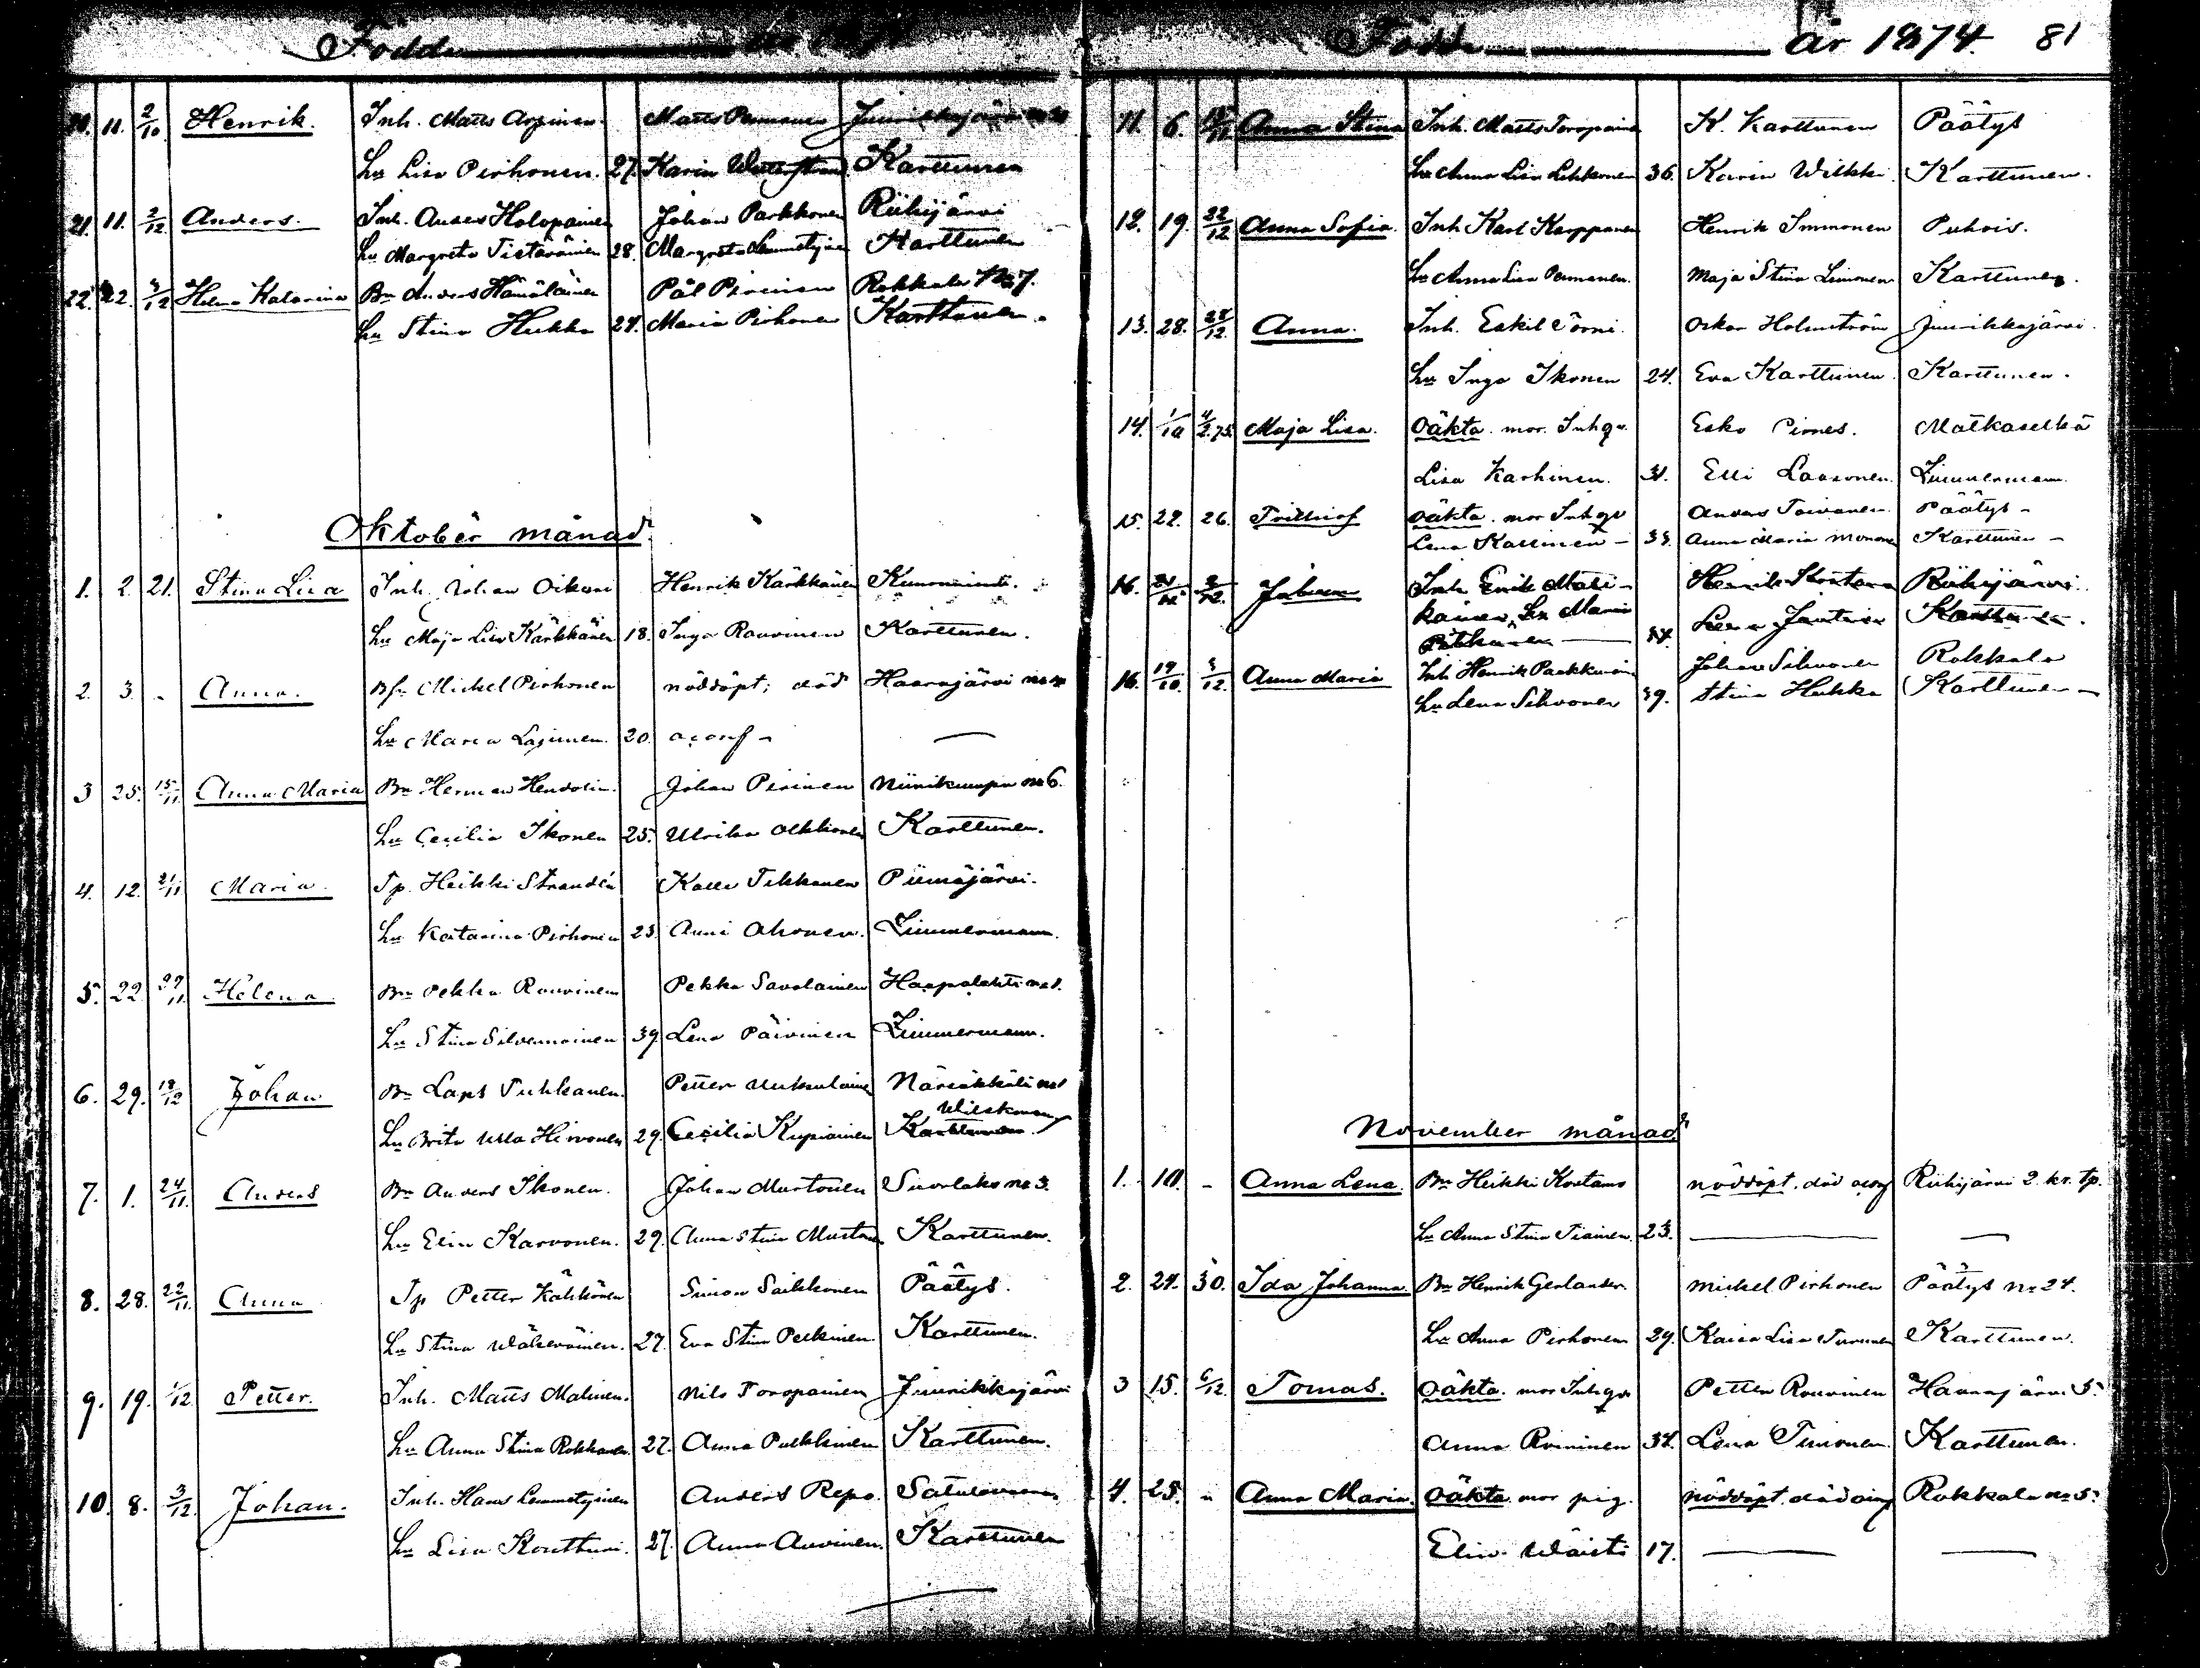 Födde
Födde år 1874. 81
11. 2/10 Henrik. Inh. Matts Arpinen Matts Parmanen
Hu Lisa Pirhonen. 27. Karin Karttunen
21. 11. 2/12 Anders. Inh. Anders Holopainen Johan Parkkonen Riihijärvi
Hu Margreta 28. Margreta Lemmetyinen Karttunen
22. 22. 3/12 Helena Katarina Bn Anders Hämäläinen Pål Pirinen Rokkala No 7.
Hu Stina Hukka 27. Maria Pirhonen Karttunen.
Oktober månad.
1. 2. 21. Stina Lisa Inh. Johan Henrik Kärkkänen
Hu Maja Lisa Kärkkänen 18. Inga Rouvinen Karttunen.
2. 3. - Anna. Michel Pirhonen nöddöpt; död Haarajärvi
Hu Maria Lajunen 20. aconf -
3 25. 15/11. Anna Maria Bn Herman Hendolin. Johan Pirinen Niinikumpu no 6.
Hu Cecilia Ikonen 25. Ulrika Olkkonen Karttunen.
4. 12. 21/11 Maria. Tp. Heikki Strandén Kalle Tikkanen Piimäjärvi.
Hu Katarina Pirhonen 23. Anni Ahonen. Zimmermann.
5. 22. /11. Helena. Bn Pekka Rouvinen Pekka Savolainen Haapalahti no 1.
Hu Stina Silvennoinen 39 Lena Päivinen Zimmermann.
6. 29. 13/12 Johan Bn Lars Puhkanen. Petter no 1
Wilskman
Hu Brita Ulla Hirvonen 29. Cecilia Kupiainen Karttunen.
7. 1. 24/11. Anders Bn Anders Ikonen. Johan Mustonen Suorlaks no 3.
Hu Elin Karvonen. 29. Anna Stina Muston Karttunen.
8. 28. 22/11. Anna Tp Petter Kähkönen Simon Saikkonen Päätys.
Hu Stina Wäkeväinen. 27. Eva Stina Pelkinen. Karttunen.
9. 19. 1/12 Petter. Inh. Matts Malinen. Nils Toropainen Juurikkajärvi
Hu Anna Stina Rokkanen 27. Anna Pulkkinen Karttunen.
10. 8. 3/12. Johan. Inh. Hans Lemmetyinen Anders Repo. Satulavaara
Hu Lisa Kontturi. 27. Anna Auvinen. Karttunen
11. 6. Anna Stina Inh. Matts Toropainen K. Karttunen Päätys
Hu Anna Lisa Lihkonen 36. Karin Wilkki. Karttunen.
12. 19. 22/12 Anna Sofia. Inh Karl Karppanen Henrik Immonen Puhois.
Hu Anna Lisa Parmanen. Maja Stina Limonen Karttunen.
13. 28. 28/12. Anna. Inh. Eskil Törni. Oskar Holmström Juurikkajärvi.
Hu Inga Ikonen 24. Eva Karttunen. Karttunen.
14. 1/10 4/2.75. Maja Lisa. Oäkta. mor. Inhqv. Esko Pirnes. Matkaselkä
Lisa Karhinen. 31. Elli Laasonen. Zimmermann.
15. 27. 26. Frithiof Oäkta. mor Inhqv Anders Toivanen Päätys -
Lena - 33. Anna Maria Mononen Karttunen -
16. Johan Inh. Erik Mati- Henrik Kostamo Riihijärvi.
kainen, Hu Maria Karttunen.
Pitkänen 34.
16. 19/10. 3/12. Anna Maria Inh Henrik Paakkunainen Johan Sihvonen Rokkala
Hu Lena Sihvonen 39. Stina Hukka Karttunen -
November månad.
1. 10. - Anna Lena. Bn Heikki Kostamo nöddöpt. död Riihijärvi 2. kr. tp.
Hu Anna Stina Tiainen. 23.
2. 24. 30. Ida Johanna. Bn Henrik Gerlander. Michel Pirhonen Päätys no 24.
Hu Anna Pirhonen 29. Kaisa Lisa Turunen Karttunen.
3 15. 6/12. Tomas. Oäkta. mor Inhqv Petter Rouvinen Haarajärvi 5.
Anna Roininen 37. Lena Timonen. Karttunen.
4. 25. - Anna Maria. Oäkta. mor pig. nöddöpt. död Rokkala no 5.
Elin Wäisti 17.